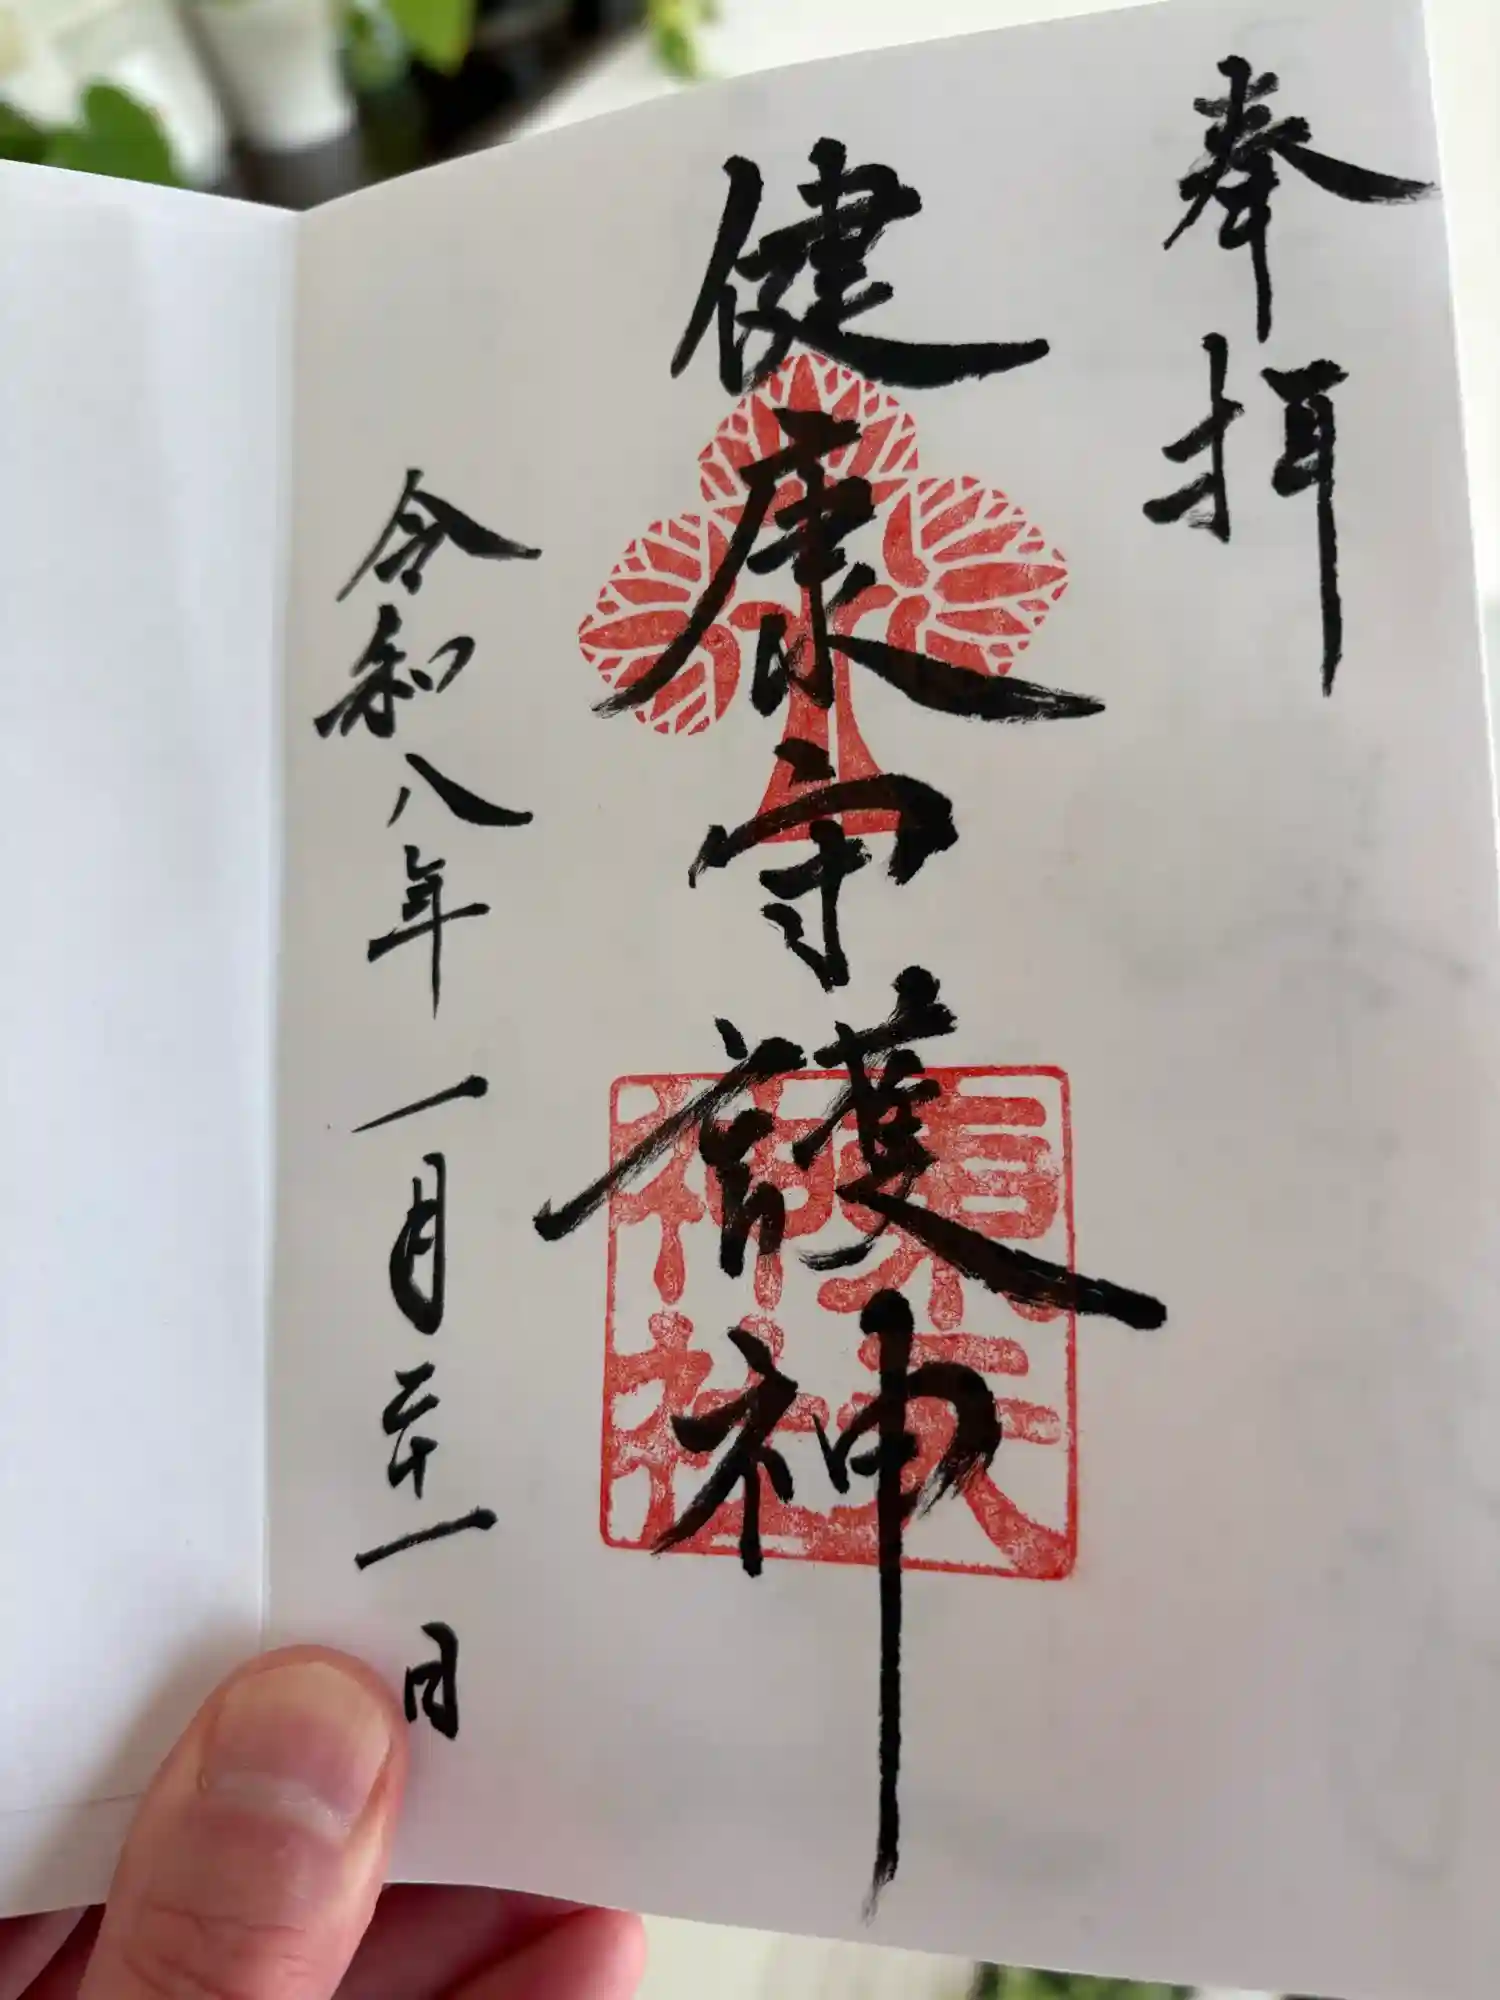 奉拝
健康守護神
神社
令和八年一月二十一日